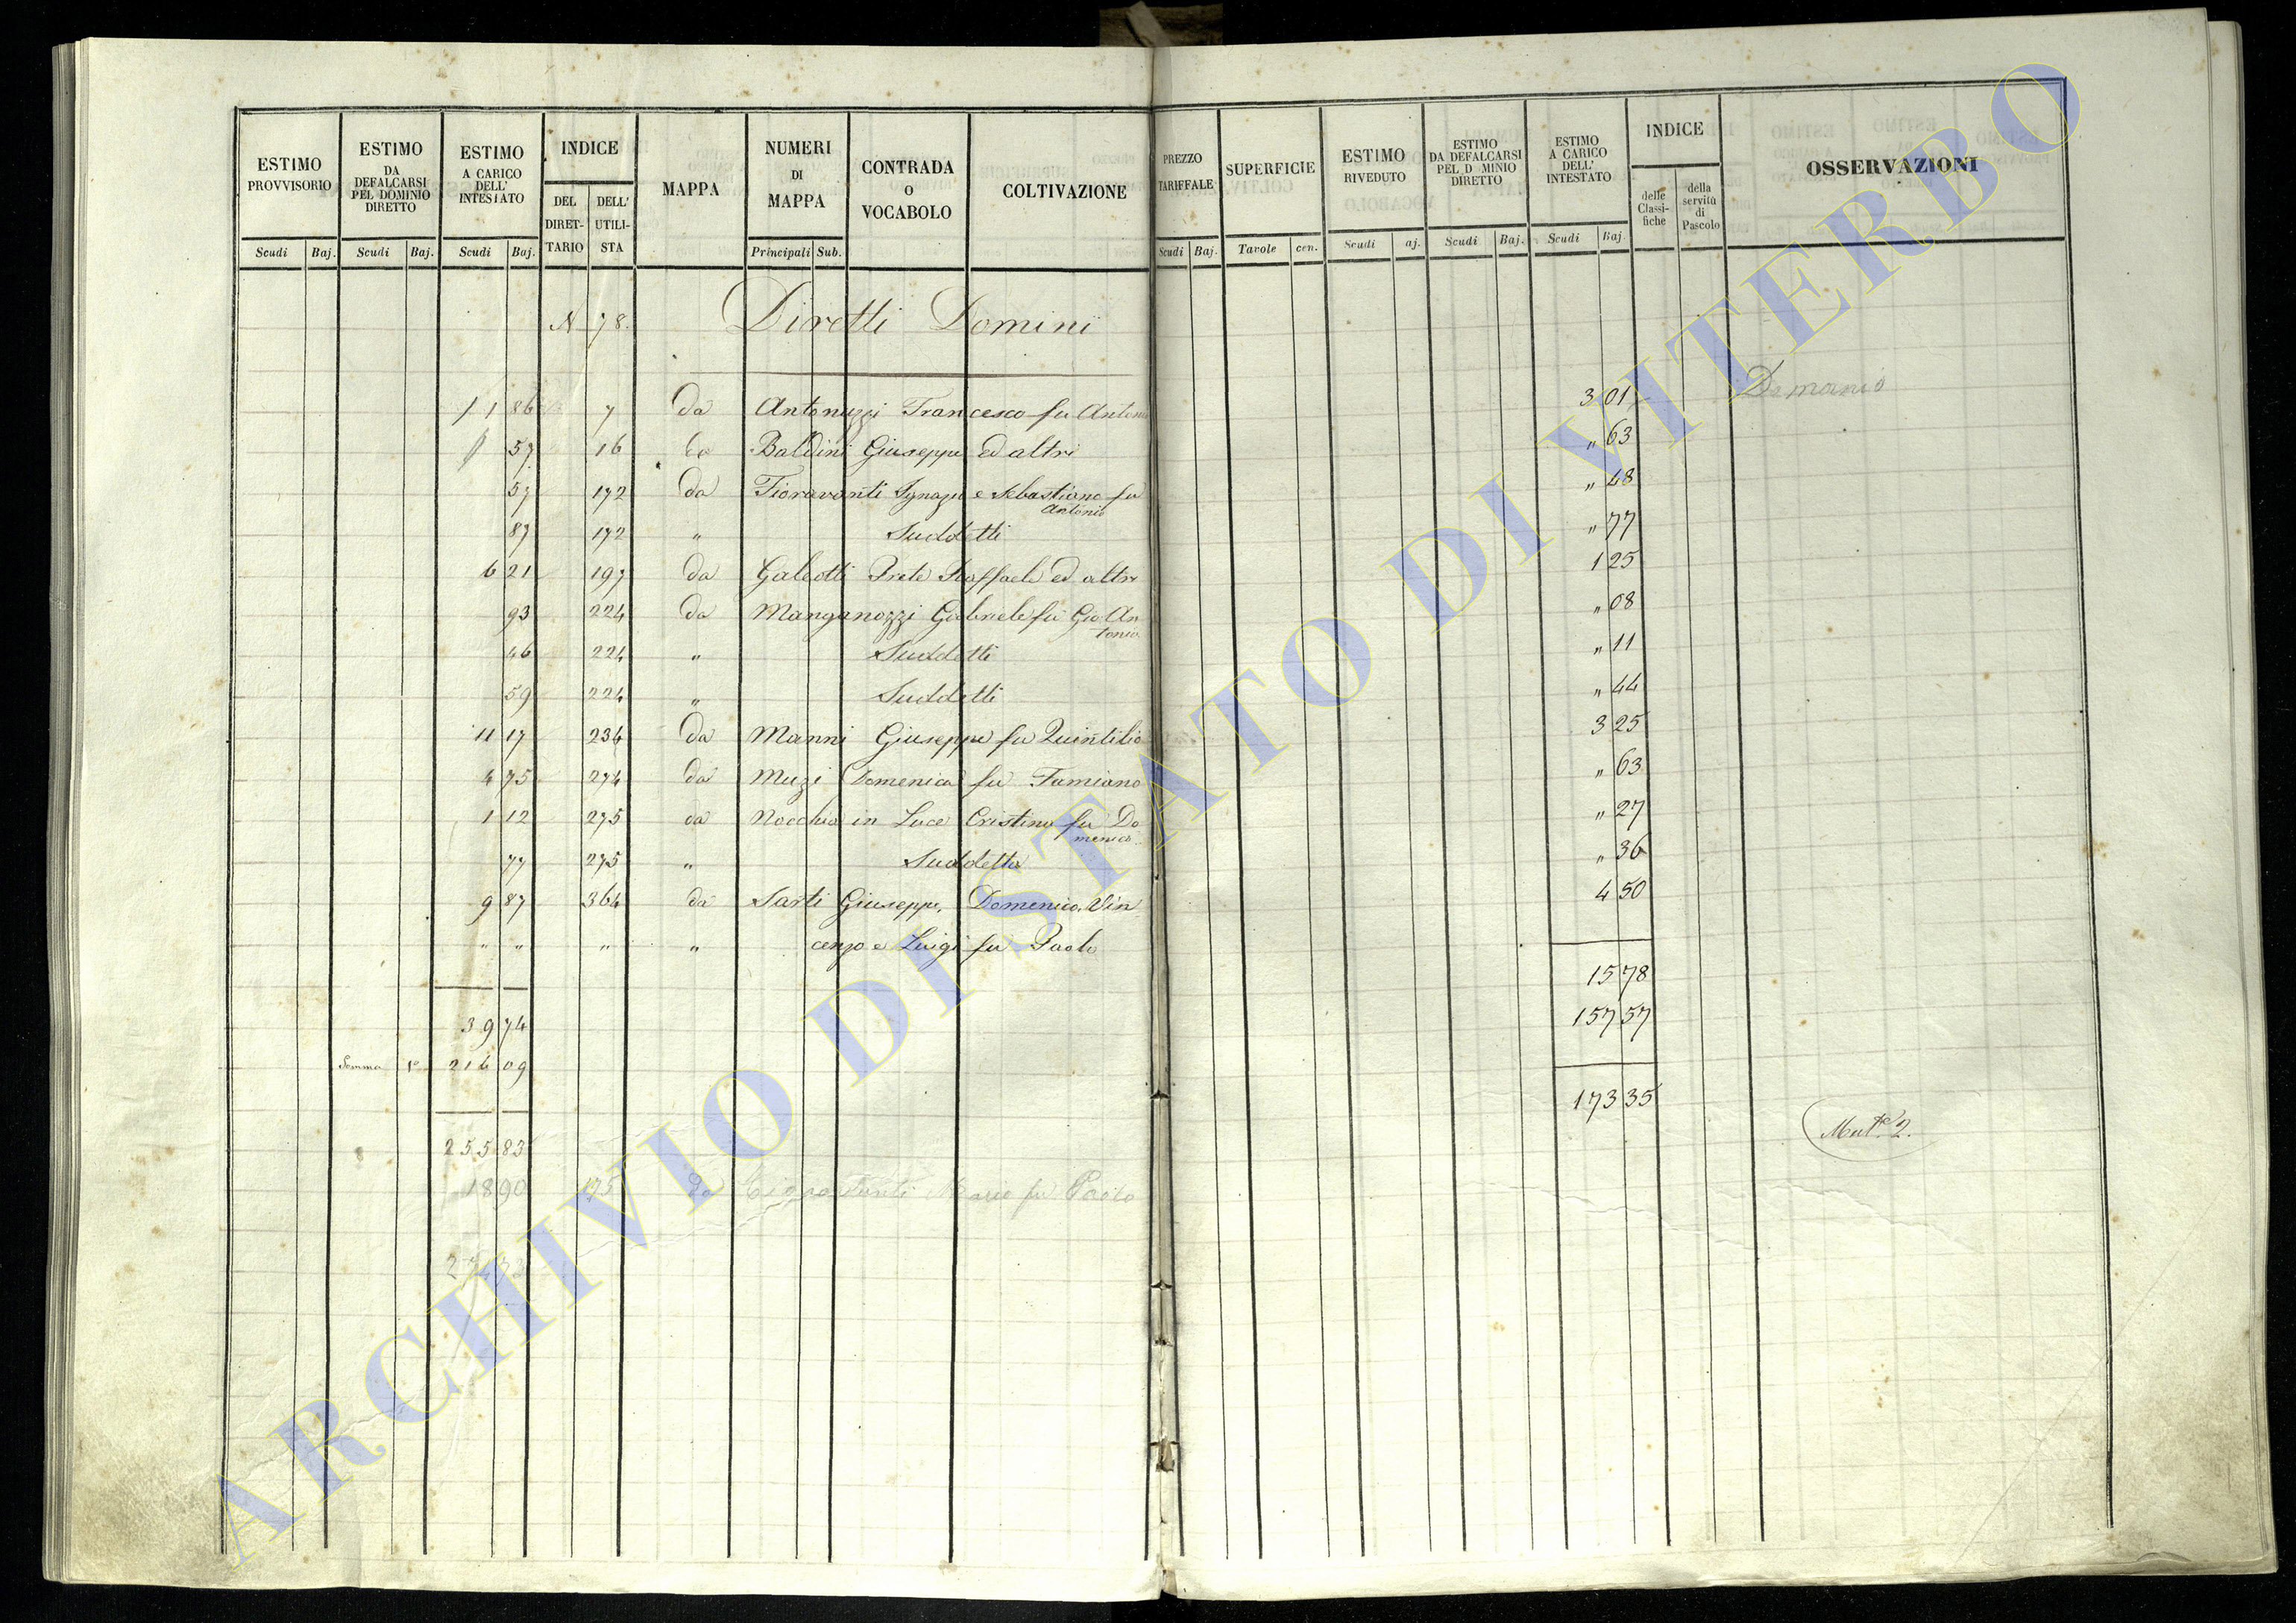 ESTIMO PROVVISORIO | ESTIMO DA DEFALCARSI PEL DOMINIO DIRETTO | ESTIMO A CARICO DELL' INTESTATO | INDICE | MAPPA | NUMERI DI MAPPA | CONTRADA O VOCABOLO | COLTIVAZIONE | PREZZO TARIFFALE | SUPERFICIE | ESTIMO RIVEDUTO | ESTIMO DA DEFALCARSI PEL D MINIO DIRETTO | ESTIMO A CARICO DELL' INTESTATO | INDICE | OSSERVAZIONI
DEL DIRETTARIO | DELL' UTILISTA | delle Classifiche | della servitù di Pascolo
Scudi | Baj. | Scudi | Baj. | Scudi | Baj. | Principali | Sub. | Scudi | Baj. | Tavole | cen. | Scudi | aj. | Scudi | Baj. | Scudi | Baj.
N 78. Diretti Domini
1 86 7 da Antonuzzi Francesco fu Antonio 3 01 Demanio
57 16 da Baldini Giuseppe ed altri " 63
57 172 da Fioravanti Ignazio e Sebastiano fu Antonio " 48
87 172 " Suddetti " 77
6 21 197 da Galeotti Prete Raffaele ed altri 1 25
93 224 da Manganozzi Gabriele fu Gio. Antonio " 08
46 224 " Suddetti " 11
59 224 " Suddetti " 44
11 17 234 da Manni Giuseppe fu Quintilio 3 25
4 75 274 da Muzi Domenica fu Famiano " 63
1 12 275 da Nocchia in Luce Cristina fu Domenico " 27
77 275 " Suddetta " 36
9 87 364 da Sarti Giuseppe, Domenico, Vin 4 50
" " " " cenzo e Luigi fu Paolo
15 78
39 74
157 57
Somma 1ª 216 09
173 35
Mut.e 2.
255 83
18 90 175 Da Maria fu Paolo
ARCHIVIO DI STATO DI VITERBO